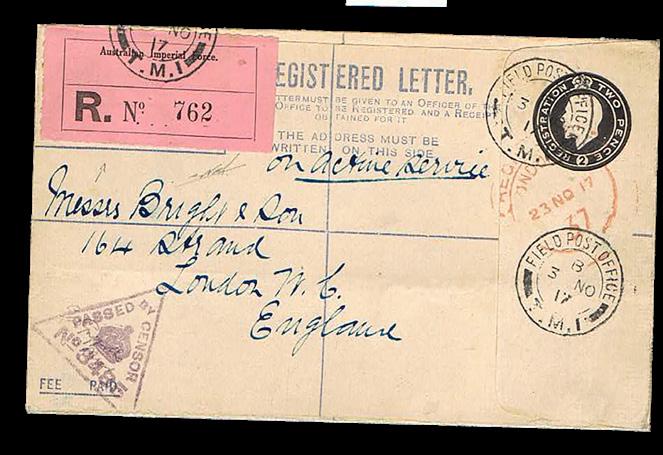 NO
17
T.M.I
Australian Imperial Force.
R. No 762
REGISTERED LETTER.
LETTER MUST BE GIVEN TO AN OFFICER OF THE
OFFICE TO BE REGISTERED AND A RECEIPT
OBTAINED FOR IT
THE ADDRESS MUST BE
WRITTEN ON THIS SIDE
on active service
Messrs Bright & Son
164 Strand
London W.C.
England
FIELD POST OFFICE
3
17
REGISTRATION TWO PENCE
2
REG
23 NO 17
37
FIELD POST OFFICE
B
3 NO
17
T.M.I.
PASSED BY CENSOR
No
FEE PAID